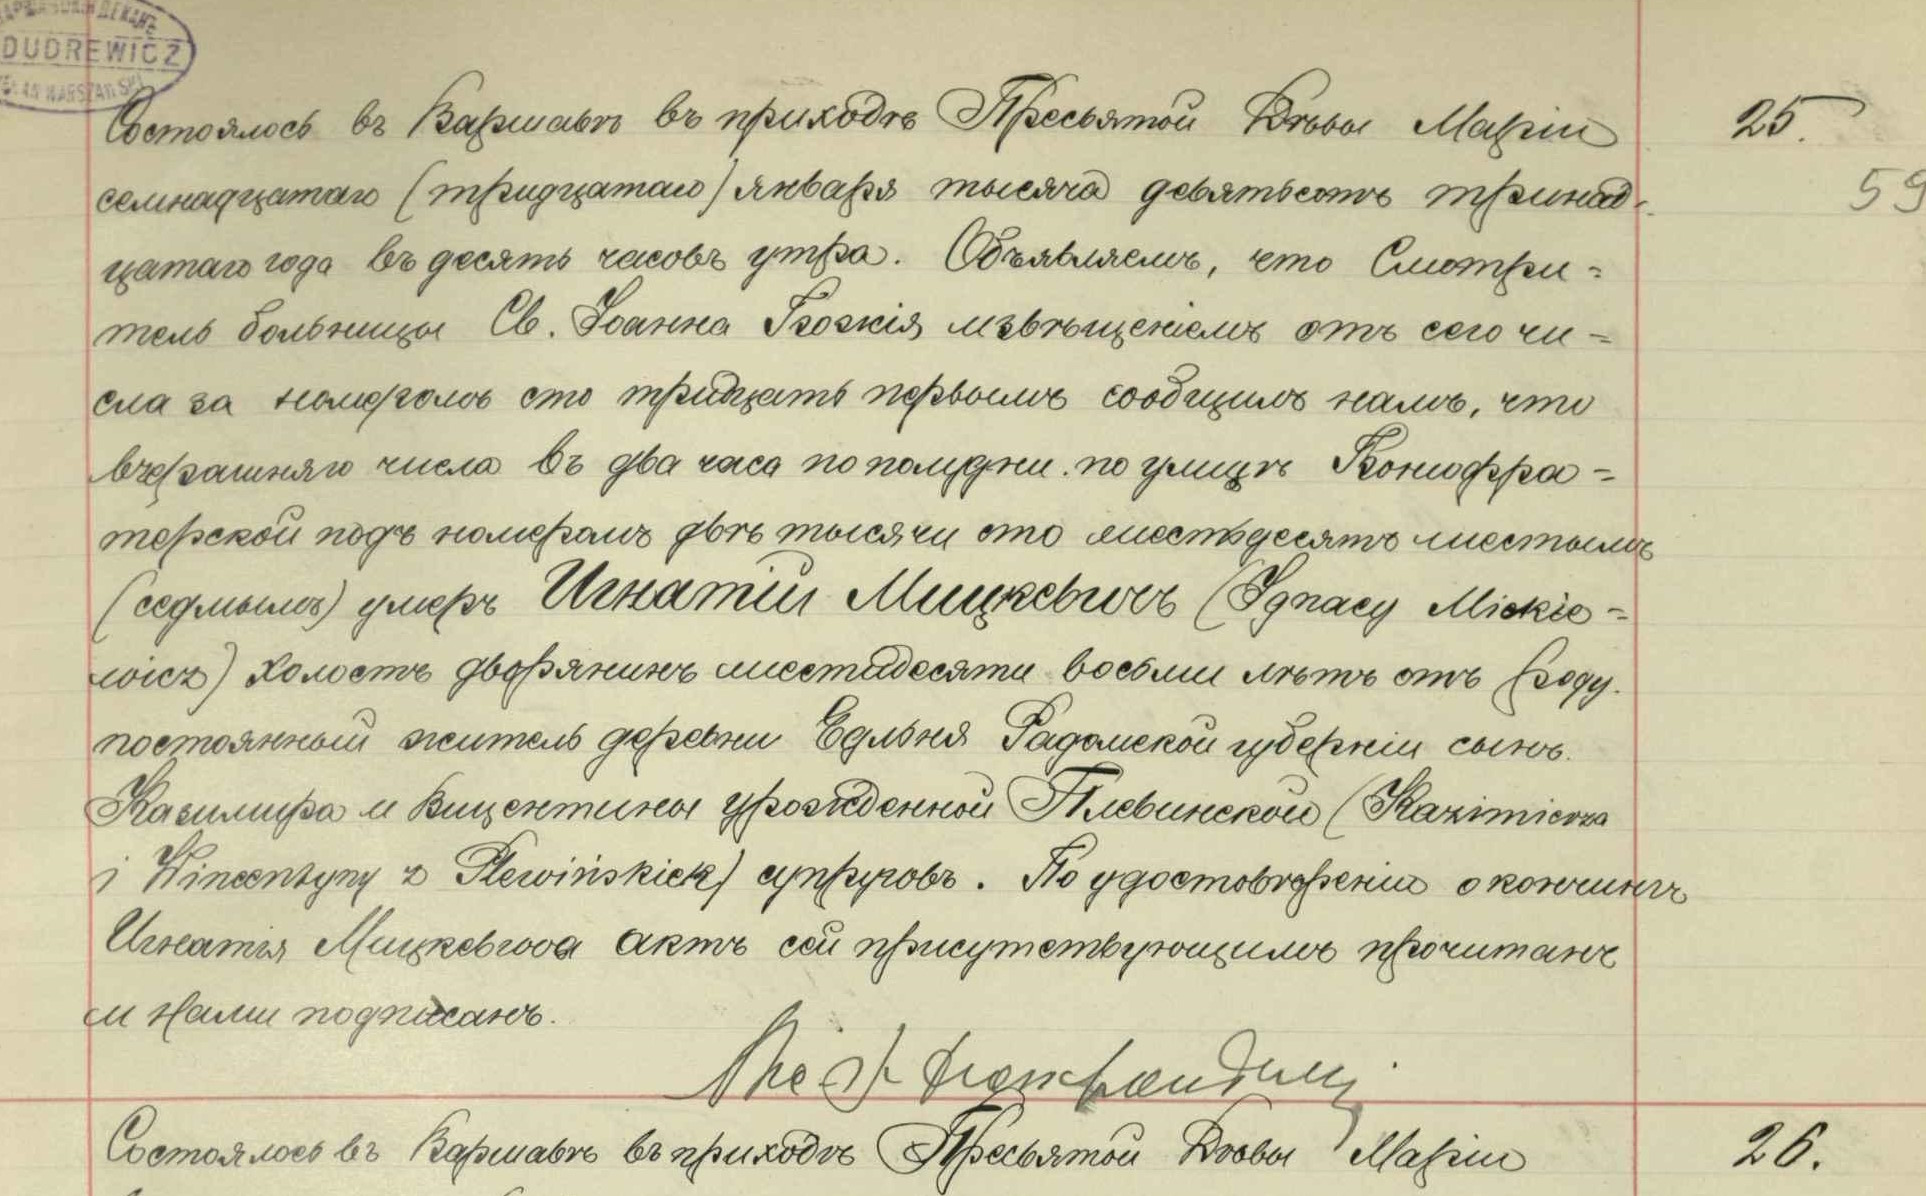 DUDREWICZ
Состоялось въ Варшавѣ въ приходѣ Пресвятой Дѣвы Маріи
25.
семнадцатаго (тридцатаго) января тысяча девятьсотъ тринад-
59
цатаго года въ десять часовъ утра. Объявляемъ, что Смотри=
тель больницы Св. Іоанна Божія извѣщеніемъ отъ сего чи=
сла за номеромъ сто тридцать первымъ сообщилъ намъ, что
вчерашняго числа въ два часа пополудни по улицѣ Бонифра=
терской подъ номеромъ двѣ тысячи сто шестьдесятъ шестымъ
(седмымъ) умеръ Игнатій Мицкевичъ (Ignacy Mickie=
wicz) холостъ дворянинъ шестидесяти восьми лѣтъ отъ роду.
постоянный житель деревни Едльня Радомской губерніи сынъ
Казимира и Вицентины урожденной Плевинской (Kazimierza
i Wincentyny z Plewińskich) супруговъ. По удостовѣреніи о кончинѣ
Игнатія Мицкевича актъ сей присутствующимъ прочитанъ
и Нами подписанъ.
Состоялось въ Варшавѣ въ приходѣ Пресвятой Дѣвы Маріи
26.